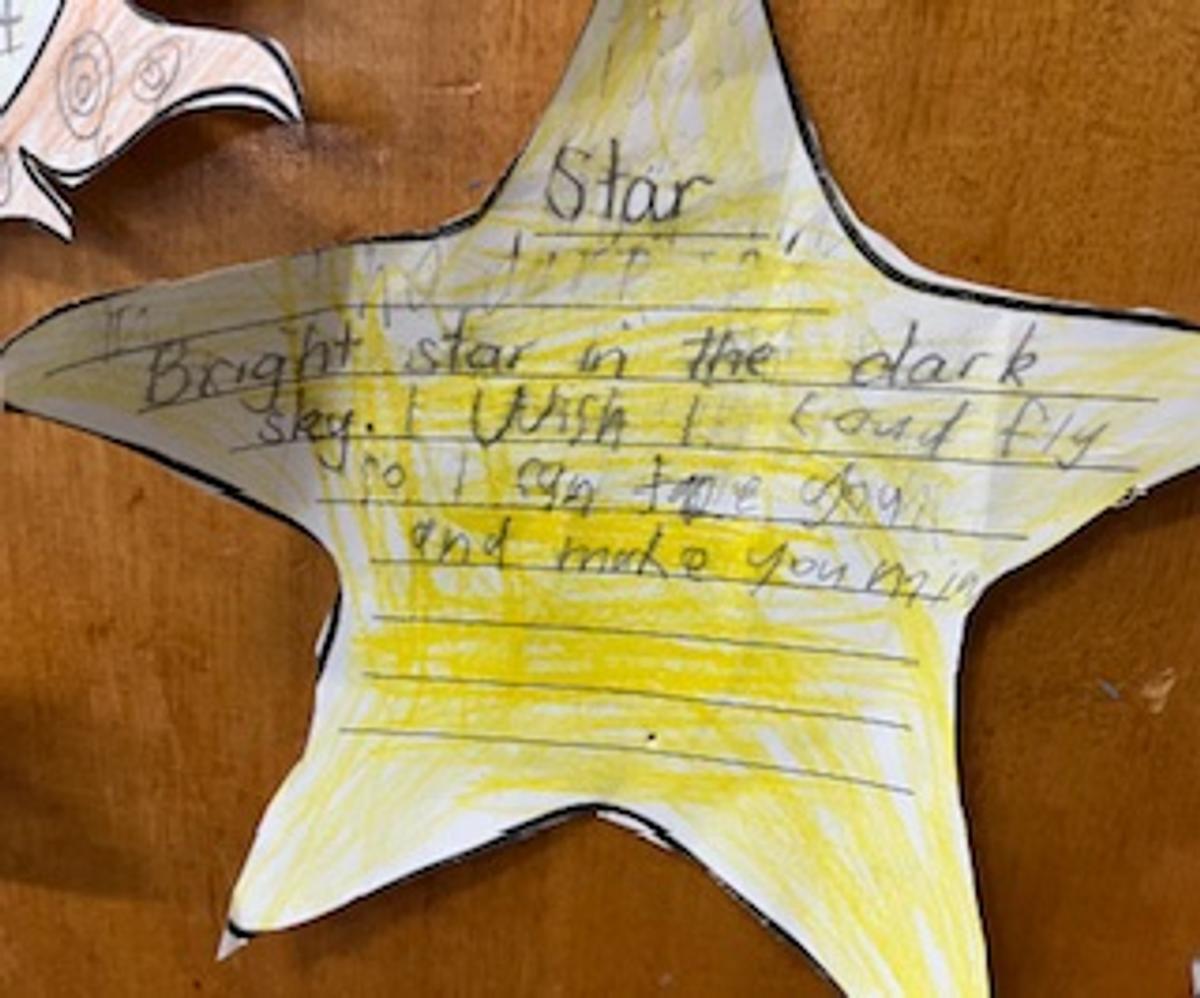 Star
Bright star in the dark
sky. I Wish I Coud fly
so I can take you
and make you min